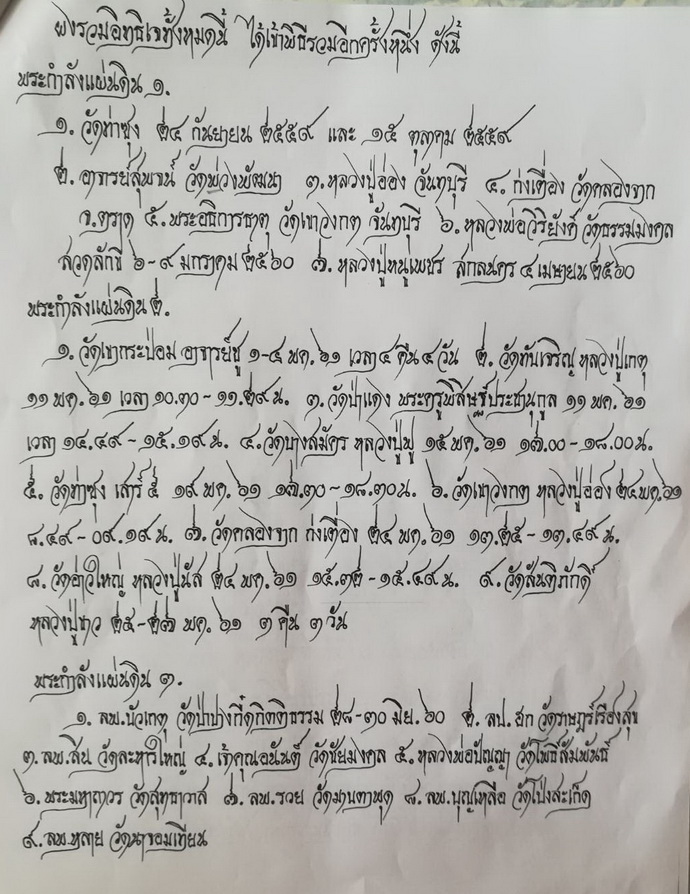 ผงรวมอิทธิเจทั้งหมดนี้ ได้เข้าพิธีรวมอีกครั้งหนึ่ง ดังนี้
พระกำลังแผ่นดิน ๑.
๑. วัดท่าซุง ๒๔ กันยายน ๒๕๕๙ และ ๑๕ ตุลาคม ๒๕๕๙
๒. อาจารย์สุพจน์ วัดพ่วงพัฒนา ๓. หลวงปู่อ่อง จันทบุรี ๔. ก๋งเตื่อง วัดคลองจาก
จ.ตราด ๕. พระอธิการธาตุ วัดเขาวงกต จันทบุรี ๖. หลวงพ่อวิริยังค์ วัดธรรมมงคล
สวดลักขี ๖-๙ มกราคม ๒๕๖๐ ๗. หลวงปู่หนูเพชร สกลนคร ๔ เมษายน ๒๕๖๐
พระกำลังแผ่นดิน ๒.
๑. วัดเขากระป่อม อาจารย์ชู ๑-๔ พค.๖๑ เวลา ๔ คืน ๔ วัน ๒. วัดทับเจริญ หลวงปู่เกตุ
๑๑ พค.๖๑ เวลา ๑๐.๓๐-๑๑.๒๙ น. ๓. วัดป่าแดง พระครูพิสิษฐ์ประชานุกูล ๑๑ พค.๖๑
เวลา ๑๔.๔๙-๑๕.๑๙ น. ๔. วัดบางสมัคร หลวงปู่ฟู ๑๕ พค.๖๑ ๑๗.๐๐-๑๘.๐๐น.
๕. วัดท่าซุง เสาร์ ๕ ๑๙ พค.๖๑ ๑๗.๓๐-๑๘.๓๐น. ๖. วัดเขาวงกต หลวงปู่อ่อง ๒๔ พค.๖๑
๘.๔๙-๐๙.๑๙ น. ๗. วัดคลองจาก ก๋งเตื่อง ๒๔ พค.๖๑ ๑๓.๒๕-๑๓.๔๙น.
๘. วัดอ่าวใหญ่ หลวงปู่นัส ๒๔ พค.๖๑ ๑๕.๓๒-๑๕.๔๙น. ๙. วัดสันติภักดิ์
หลวงปู่ขาว ๒๕-๒๗ พค.๖๑ ๓ คืน ๓ วัน
พระกำลังแผ่นดิน ๓.
๑. ลพ.บัวเกตุ วัดป่าปางกึ๊ดกิตติธรรม ๒๘-๓๐ มิย.๖๐ ๒. ลป.ฮก วัดราษฎร์เรืองสุข
๓. ลพ.สิน วัดละหารใหญ่ ๔. เจ้าคุณอนันต์ วัดชัยมงคล ๕. หลวงพ่อปัญญา วัดโพธิ์สัมพันธ์
๖. พระมหาถาวร วัดสุทธาวาส ๗. ลพ.รวย วัดมาบตาพุด ๘. ลพ.บุญเหลือ วัดโป่งสะเก็ด
๙. ลพ.หลาย วัดนาจอมเทียน